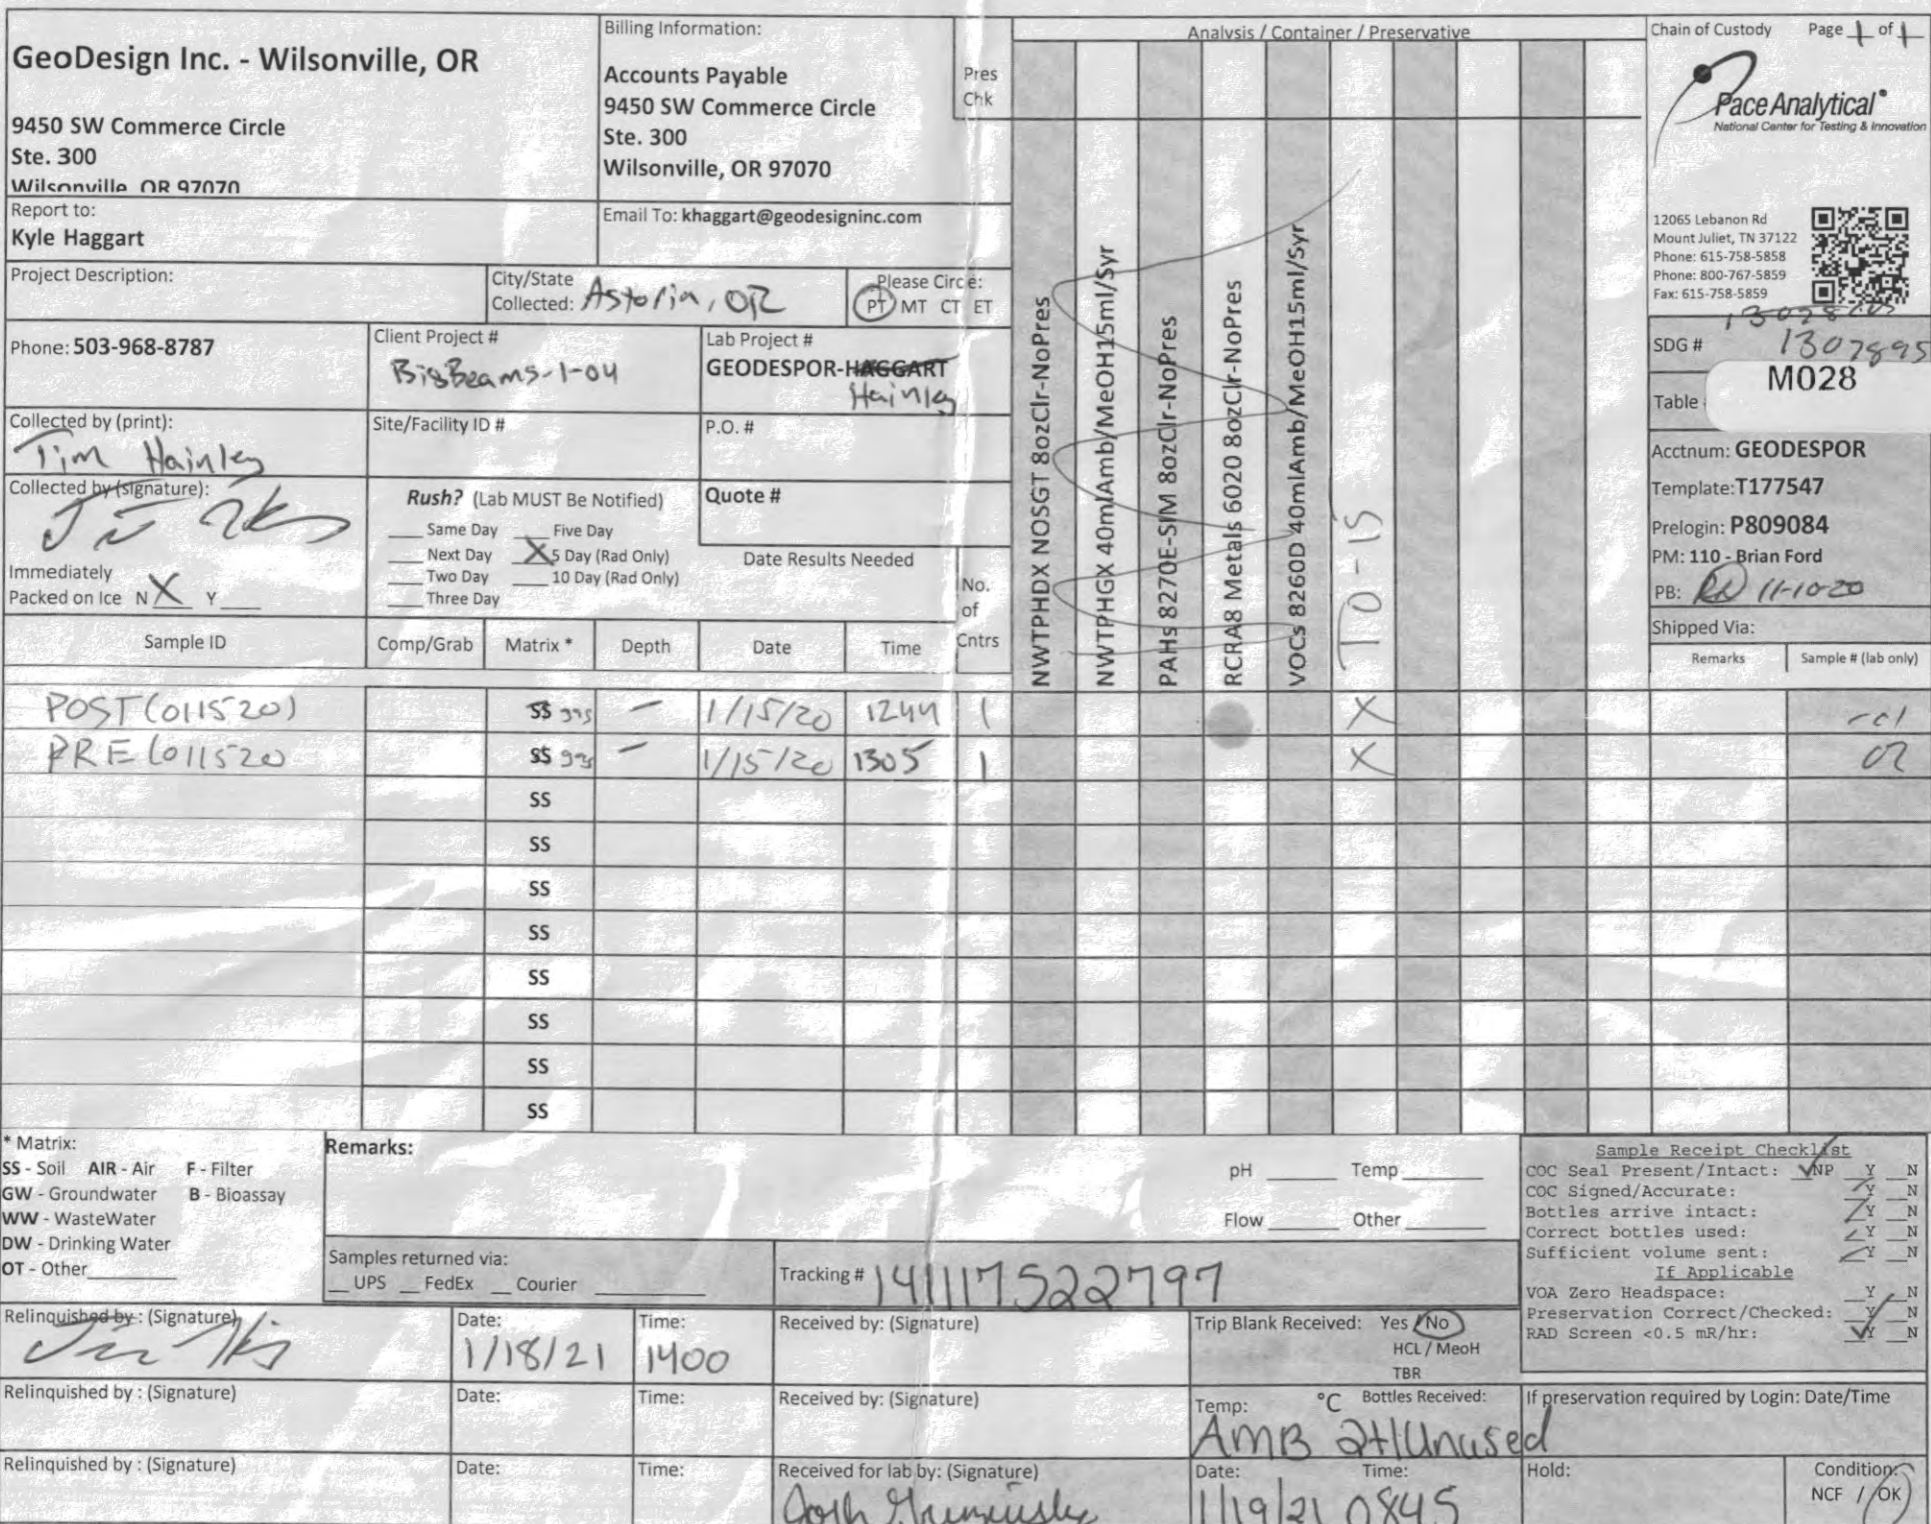 GeoDesign Inc. - Wilsonville, OR
9450 SW Commerce Circle
Ste. 300
Wilsonville, OR 97070
Billing Information:
Accounts Payable
9450 SW Commerce Circle
Ste. 300
Wilsonville, OR 97070
Pres
Chk
Analysis / Container / Preservative
Chain of Custody Page 1 of 1
Pace Analytical®
National Center for Testing & Innovation
12065 Lebanon Rd
Mount Juliet, TN 37122
Phone: 615-758-5858
Phone: 800-767-5859
Fax: 615-758-5859
Report to:
Kyle Haggart
Email To: khaggart@geodesigninc.com
Project Description:
City/State
Collected: Astoria, OR
Please Circle:
PT MT CT ET
Phone: 503-968-8787
Client Project #
BigBeams-1-04
Lab Project #
GEODESPOR-HAGGART
Hainley
Collected by (print):
Tim Hainley
Site/Facility ID #
P.O. #
Collected by (signature):
Rush? (Lab MUST Be Notified)
Same Day Five Day
Next Day X 5 Day (Rad Only)
Two Day 10 Day (Rad Only)
Three Day
Quote #
Date Results Needed
Immediately
Packed on Ice N X Y
No.
of
Cntrs
NWTPHDX NOSGT 8ozClr-NoPres
NWTPHGX 40mlAmb/MeOH15ml/Syr
PAHs 8270E-SIM 8ozClr-NoPres
RCRA8 Metals 6020 8ozClr-NoPres
VOCs 8260D 40mlAmb/MeOH15ml/Syr
TO-15
SDG # 1307895
M028
Table
Acctnum: GEODESPOR
Template: T177547
Prelogin: P809084
PM: 110 - Brian Ford
PB: 11-10-20
Shipped Via:
Remarks Sample # (lab only)
Sample ID Comp/Grab Matrix * Depth Date Time
POST(011520) SS gas - 1/15/20 1244 1 X
PRE(011520 SS gas - 1/15/20 1305 1 X 02
SS
SS
SS
SS
SS
SS
SS
SS
* Matrix:
SS - Soil AIR - Air F - Filter
GW - Groundwater B - Bioassay
WW - WasteWater
DW - Drinking Water
OT - Other
Remarks:
pH Temp
Flow Other
Samples returned via:
UPS FedEx Courier
Tracking # 141117522797
Sample Receipt Checklist
COC Seal Present/Intact: NP Y N
COC Signed/Accurate: Y N
Bottles arrive intact: Y N
Correct bottles used: Y N
Sufficient volume sent: Y N
If Applicable
VOA Zero Headspace: Y N
Preservation Correct/Checked: Y N
RAD Screen <0.5 mR/hr: Y N
Relinquished by : (Signature)
Date:
1/18/21
Time:
1400
Received by: (Signature)
Trip Blank Received: Yes / No
HCL / MeoH
TBR
Relinquished by : (Signature)
Date:
Time:
Received by: (Signature)
Temp: °C Bottles Received:
AMB 2+1Unused
If preservation required by Login: Date/Time
Relinquished by : (Signature)
Date:
Time:
Received for lab by: (Signature)
Date: Time:
1/19/21 0845
Hold:
Condition:
NCF / OK